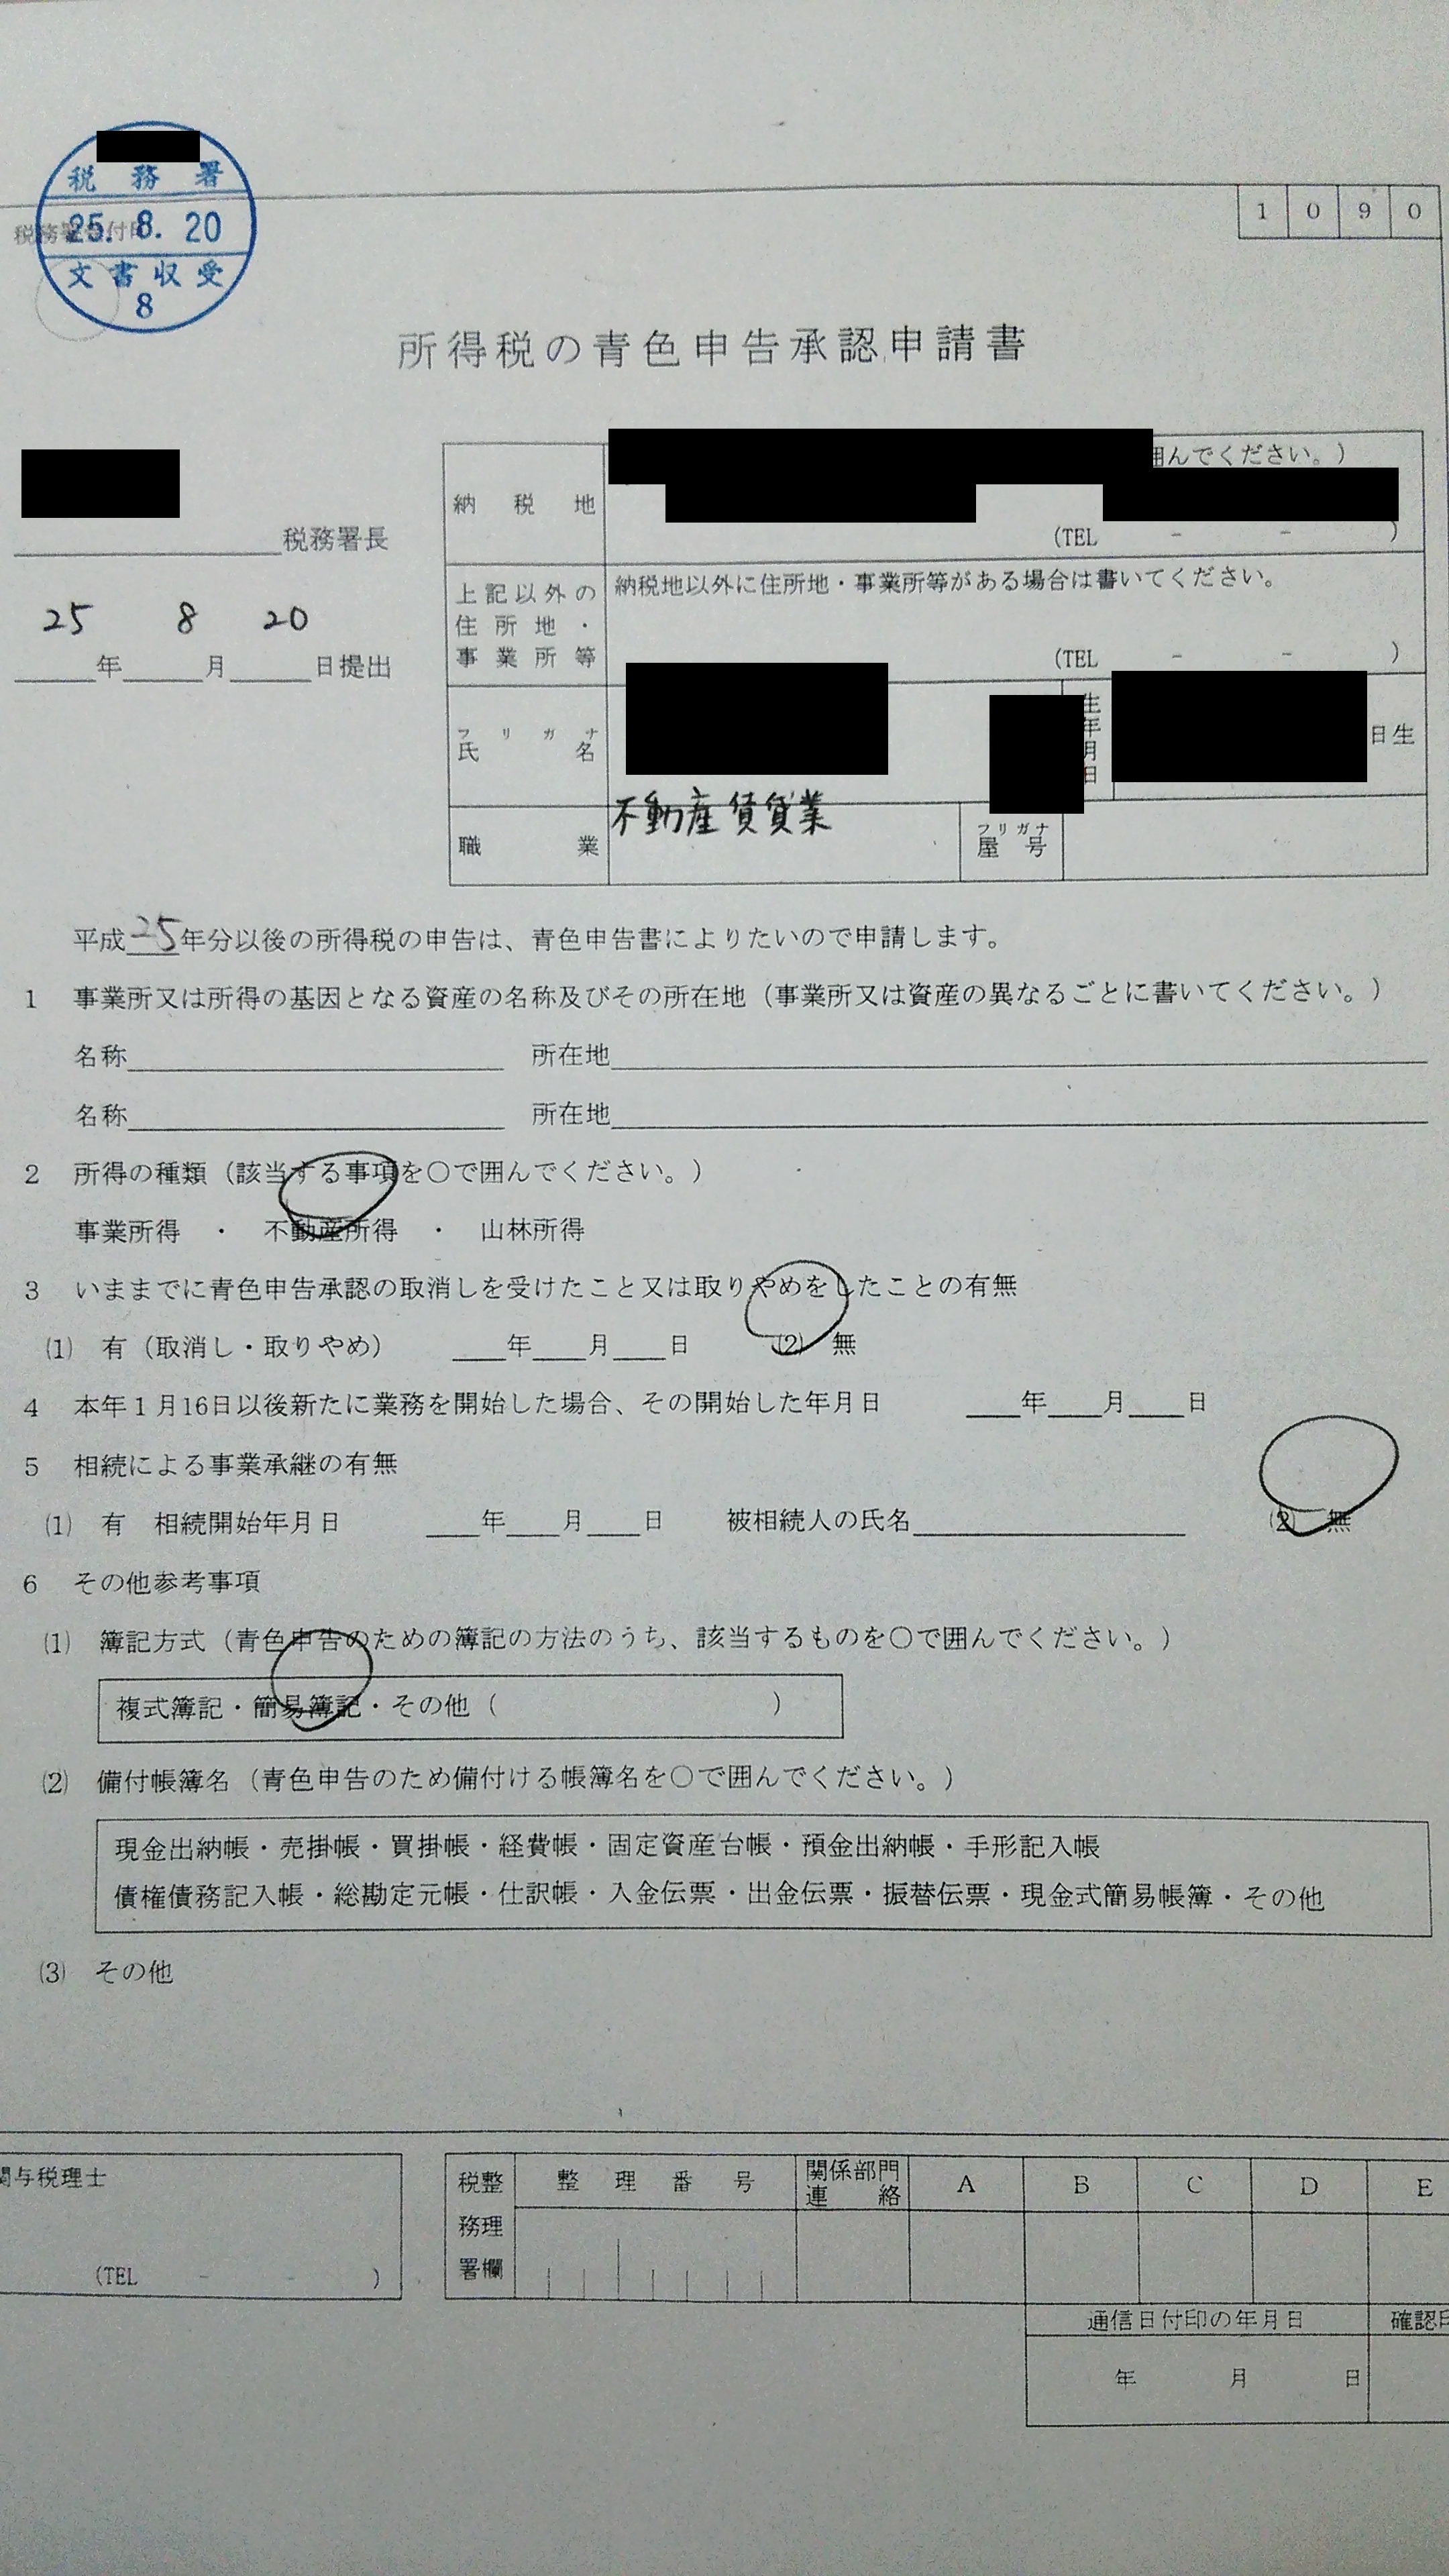 税務署
25.8.20
文書収受
8
1090
所得税の青色申告承認申請書
税務署長
25 8 20
年 月 日提出
納税地
囲んでください。)
(TEL - - )
上記以外の住所地・事業所等
納税地以外に住所地・事業所等がある場合は書いてください。
(TEL - - )
フリガナ
氏名
生年月日
日生
職業
不動産賃貸業
フリガナ
屋号
平成25年分以後の所得税の申告は、青色申告書によりたいので申請します。
1 事業所又は所得の基因となる資産の名称及びその所在地(事業所又は資産の異なるごとに書いてください。)
名称 所在地
名称 所在地
2 所得の種類(該当する事項を○で囲んでください。)
事業所得 ・ 不動産所得 ・ 山林所得
3 いままでに青色申告承認の取消しを受けたこと又は取りやめをしたことの有無
(1) 有(取消し・取りやめ) 年 月 日 (2) 無
4 本年1月16日以後新たに業務を開始した場合、その開始した年月日 年 月 日
5 相続による事業承継の有無
(1) 有 相続開始年月日 年 月 日 被相続人の氏名 (2) 無
6 その他参考事項
(1) 簿記方式(青色申告のための簿記の方法のうち、該当するものを○で囲んでください。)
複式簿記・簡易簿記・その他( )
(2) 備付帳簿名(青色申告のため備付ける帳簿名を○で囲んでください。)
現金出納帳・売掛帳・買掛帳・経費帳・固定資産台帳・預金出納帳・手形記入帳
債権債務記入帳・総勘定元帳・仕訳帳・入金伝票・出金伝票・振替伝票・現金式簡易帳簿・その他
(3) その他
関与税理士
(TEL - - )
税務署整理欄
整理番号
関係部門連絡
A B C D E
通信日付印の年月日
確認印
年 月 日